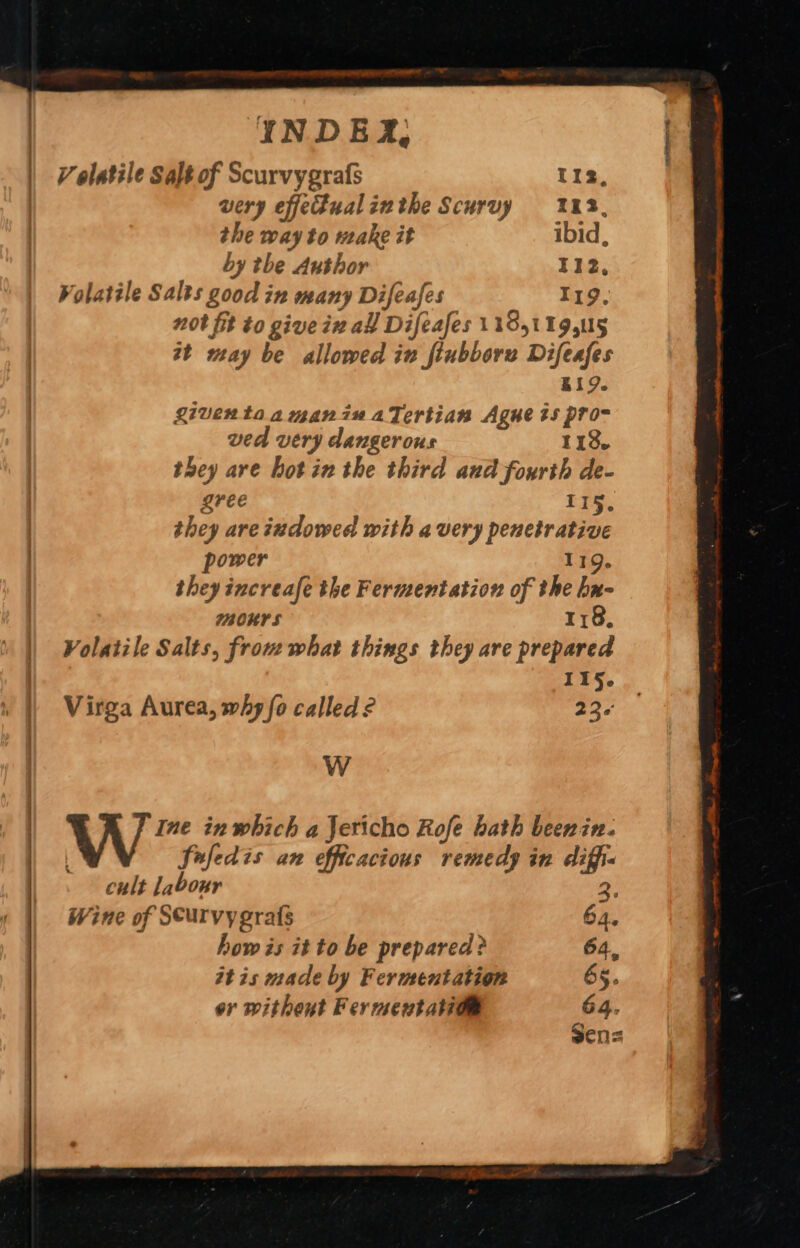 INDEX,
Volatile Salt of Scurvygraſs 112,
very effectual in the Scurvy 112,
the way to make it ibid,
by the Author 112,
Volatile Salts good in many Diſeaſes 119.
not fit to give in all Diſeaſes 118,119,115
it may be allowed in ſtubborn Diſeaſes
119.
given to a man in a Tertian Ague is pro-
ved very dangerous 118.
they are hot in the third and fourth de-
gree 115.
they are indowed with a very penetrative
power 119.
they increaſe the Fermentation of the hu-
mours 118.
Volatile Salts, from what things they are prepared
115.
Virga Aurea, why ſo called? 23.
W
WIne in which a Jericho Roſe hath been in-
fuſed is an efficacious remedy in diffi-
cult labour 3.
Wine of Scurvygraſs 64.
how is it to be prepared? 64,
it is made by Fermentation 65.
or without Fermentation 64.
Sen=